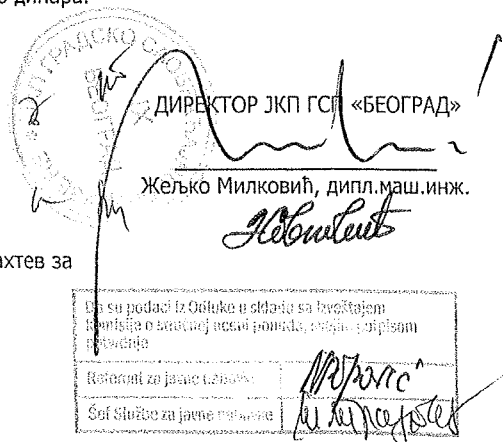 динара.
ДИРЕКТОР ЈКП ГСП «БЕОГРАД»
Жељко Милковић, дипл.маш.инж.
ахтев за
Da su podaci iz Odluke u skladu sa Izveštajem
Komisije o stručnoj oceni ponuda, svojim potpisom
potvrđuje
Referent za javne nabavke
Šef Službe za javne nabavke